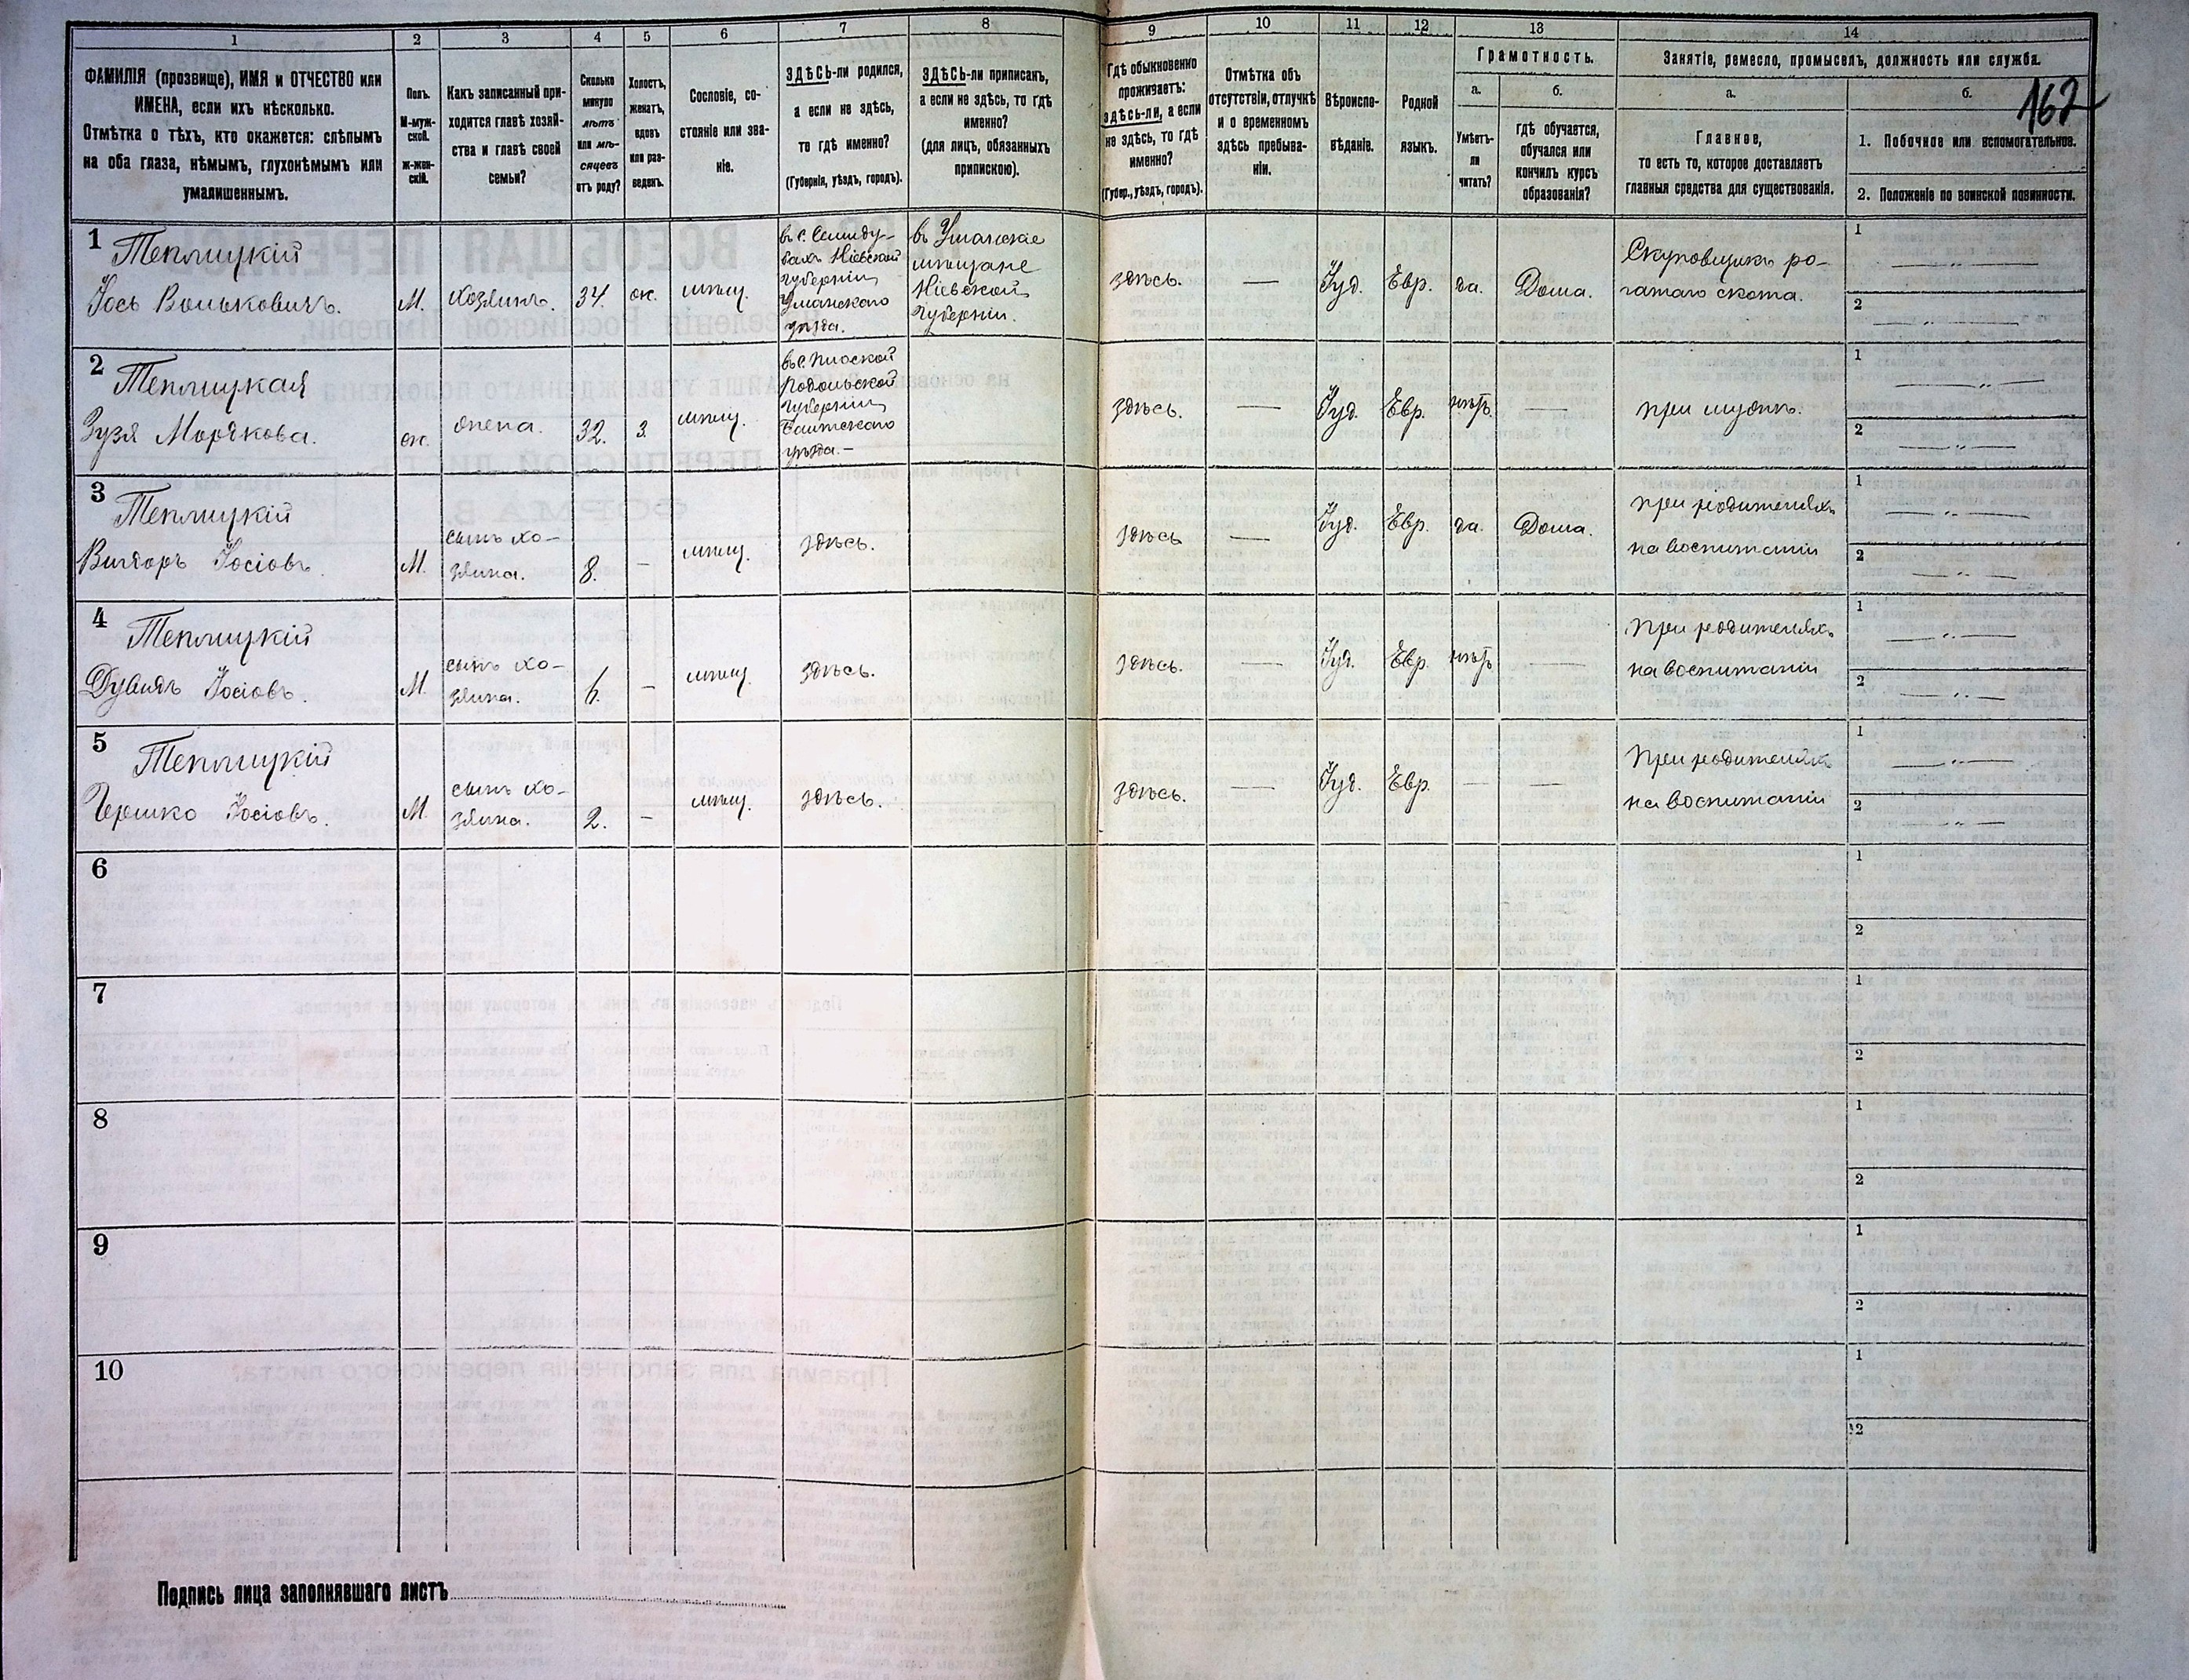 1 2 3 4 5 6 7 8 9 10 11 12 13 14
ФАМИЛІЯ (прозвище), ИМЯ и ОТЧЕСТВО или
ИМЕНА, если ихъ нѣсколько.
Отмѣтка о тѣхъ, кто окажется: слѣпымъ
на оба глаза, нѣмымъ, глухонѣмымъ или
умалишеннымъ.
Полъ.
М-муж-
ской.
ж-жен-
скій.
Какъ записанный при-
ходится главѣ хозяй-
ства и главѣ своей
семьи?
Сколько
минуло
лѣтъ
или мѣ-
сяцевъ
отъ роду?
Холостъ,
женатъ,
вдовъ
или раз-
веденъ.
Сословіе, со-
стояніе или зва-
ніе.
ЗДѢСЬ-ли родился,
а если не здѣсь,
то гдѣ именно?
(Губернія, уѣздъ, городъ).
ЗДѢСЬ-ли приписанъ,
а если не здѣсь, то гдѣ
именно?
(для лицъ, обязанныхъ
припискою).
Гдѣ обыкновенно
проживаетъ:
здѣсь-ли, а если
не здѣсь, то гдѣ
именно?
(Губер., уѣздъ, городъ).
Отмѣтка объ
отсутствіи, отлучкѣ
и о временномъ
здѣсь пребыва-
ніи.
Вѣроиспо-
вѣданіе.
Родной
языкъ.
Грамотность.
а.
Умѣетъ-
ли
читать?
б.
гдѣ обучается,
обучался или
кончилъ курсъ
образованія?
Занятіе, ремесло, промыселъ, должность или служба.
а.
Главное,
то есть то, которое доставляетъ
главныя средства для существованія.
б.
162
1. Побочное или вспомогательное.
2. Положеніе по воинской повинности.
1
Теплицкій
Іось Вольковичъ.
М.
хозяинъ.
34.
ж.
мѣщ.
въ с. Семиду-
бахъ Кіевской
губерніи
Уманскаго
уѣзда.
въ Уманскіе
мѣщане
Кіевской
губерніи.
здѣсь.
—
Іуд.
Евр.
да.
Дома.
Скуповщикъ ро-
гатаго скота.
1 — „ —
2 — „ —
2
Теплицкая
Зузя Моръкова.
ж.
жена.
32.
З.
мѣщ.
въ с. Плоской
Подольской
губерніи
Балтскаго
уѣзда.—
здѣсь.
—
Іуд.
Евр.
нѣтъ.
—
при мужѣ.
1 — „ —
2 — „ —
3
Теплицкій
Іосіовъ.
М.
сынъ хо-
зяина.
8.
–
мѣщ.
здѣсь.
здѣсь
—
Іуд.
Евр.
да.
Дома.
при родителяхъ
на воспитаніи
1 — „ —
2 — „ —
4
Теплицкій
Дувидъ Іосіовъ.
М.
сынъ хо-
зяина.
6.
–
мѣщ.
здѣсь.
здѣсь.
—
Іуд.
Евр.
нѣтъ
—
При родителяхъ
на воспитаніи
1 — „ —
2 — „ —
5
Теплицкій
Гершко Іосіовъ.
М.
сынъ хо-
зяина.
2.
–
мѣщ.
здѣсь.
здѣсь.
—
Іуд.
Евр.
—
—
При родителяхъ
на воспитаніи
1 — „ —
2 — „ —
6
1
2
7
1
2
8
1
2
9
1
2
10
1
2
Подпись лица заполнявшаго листъ